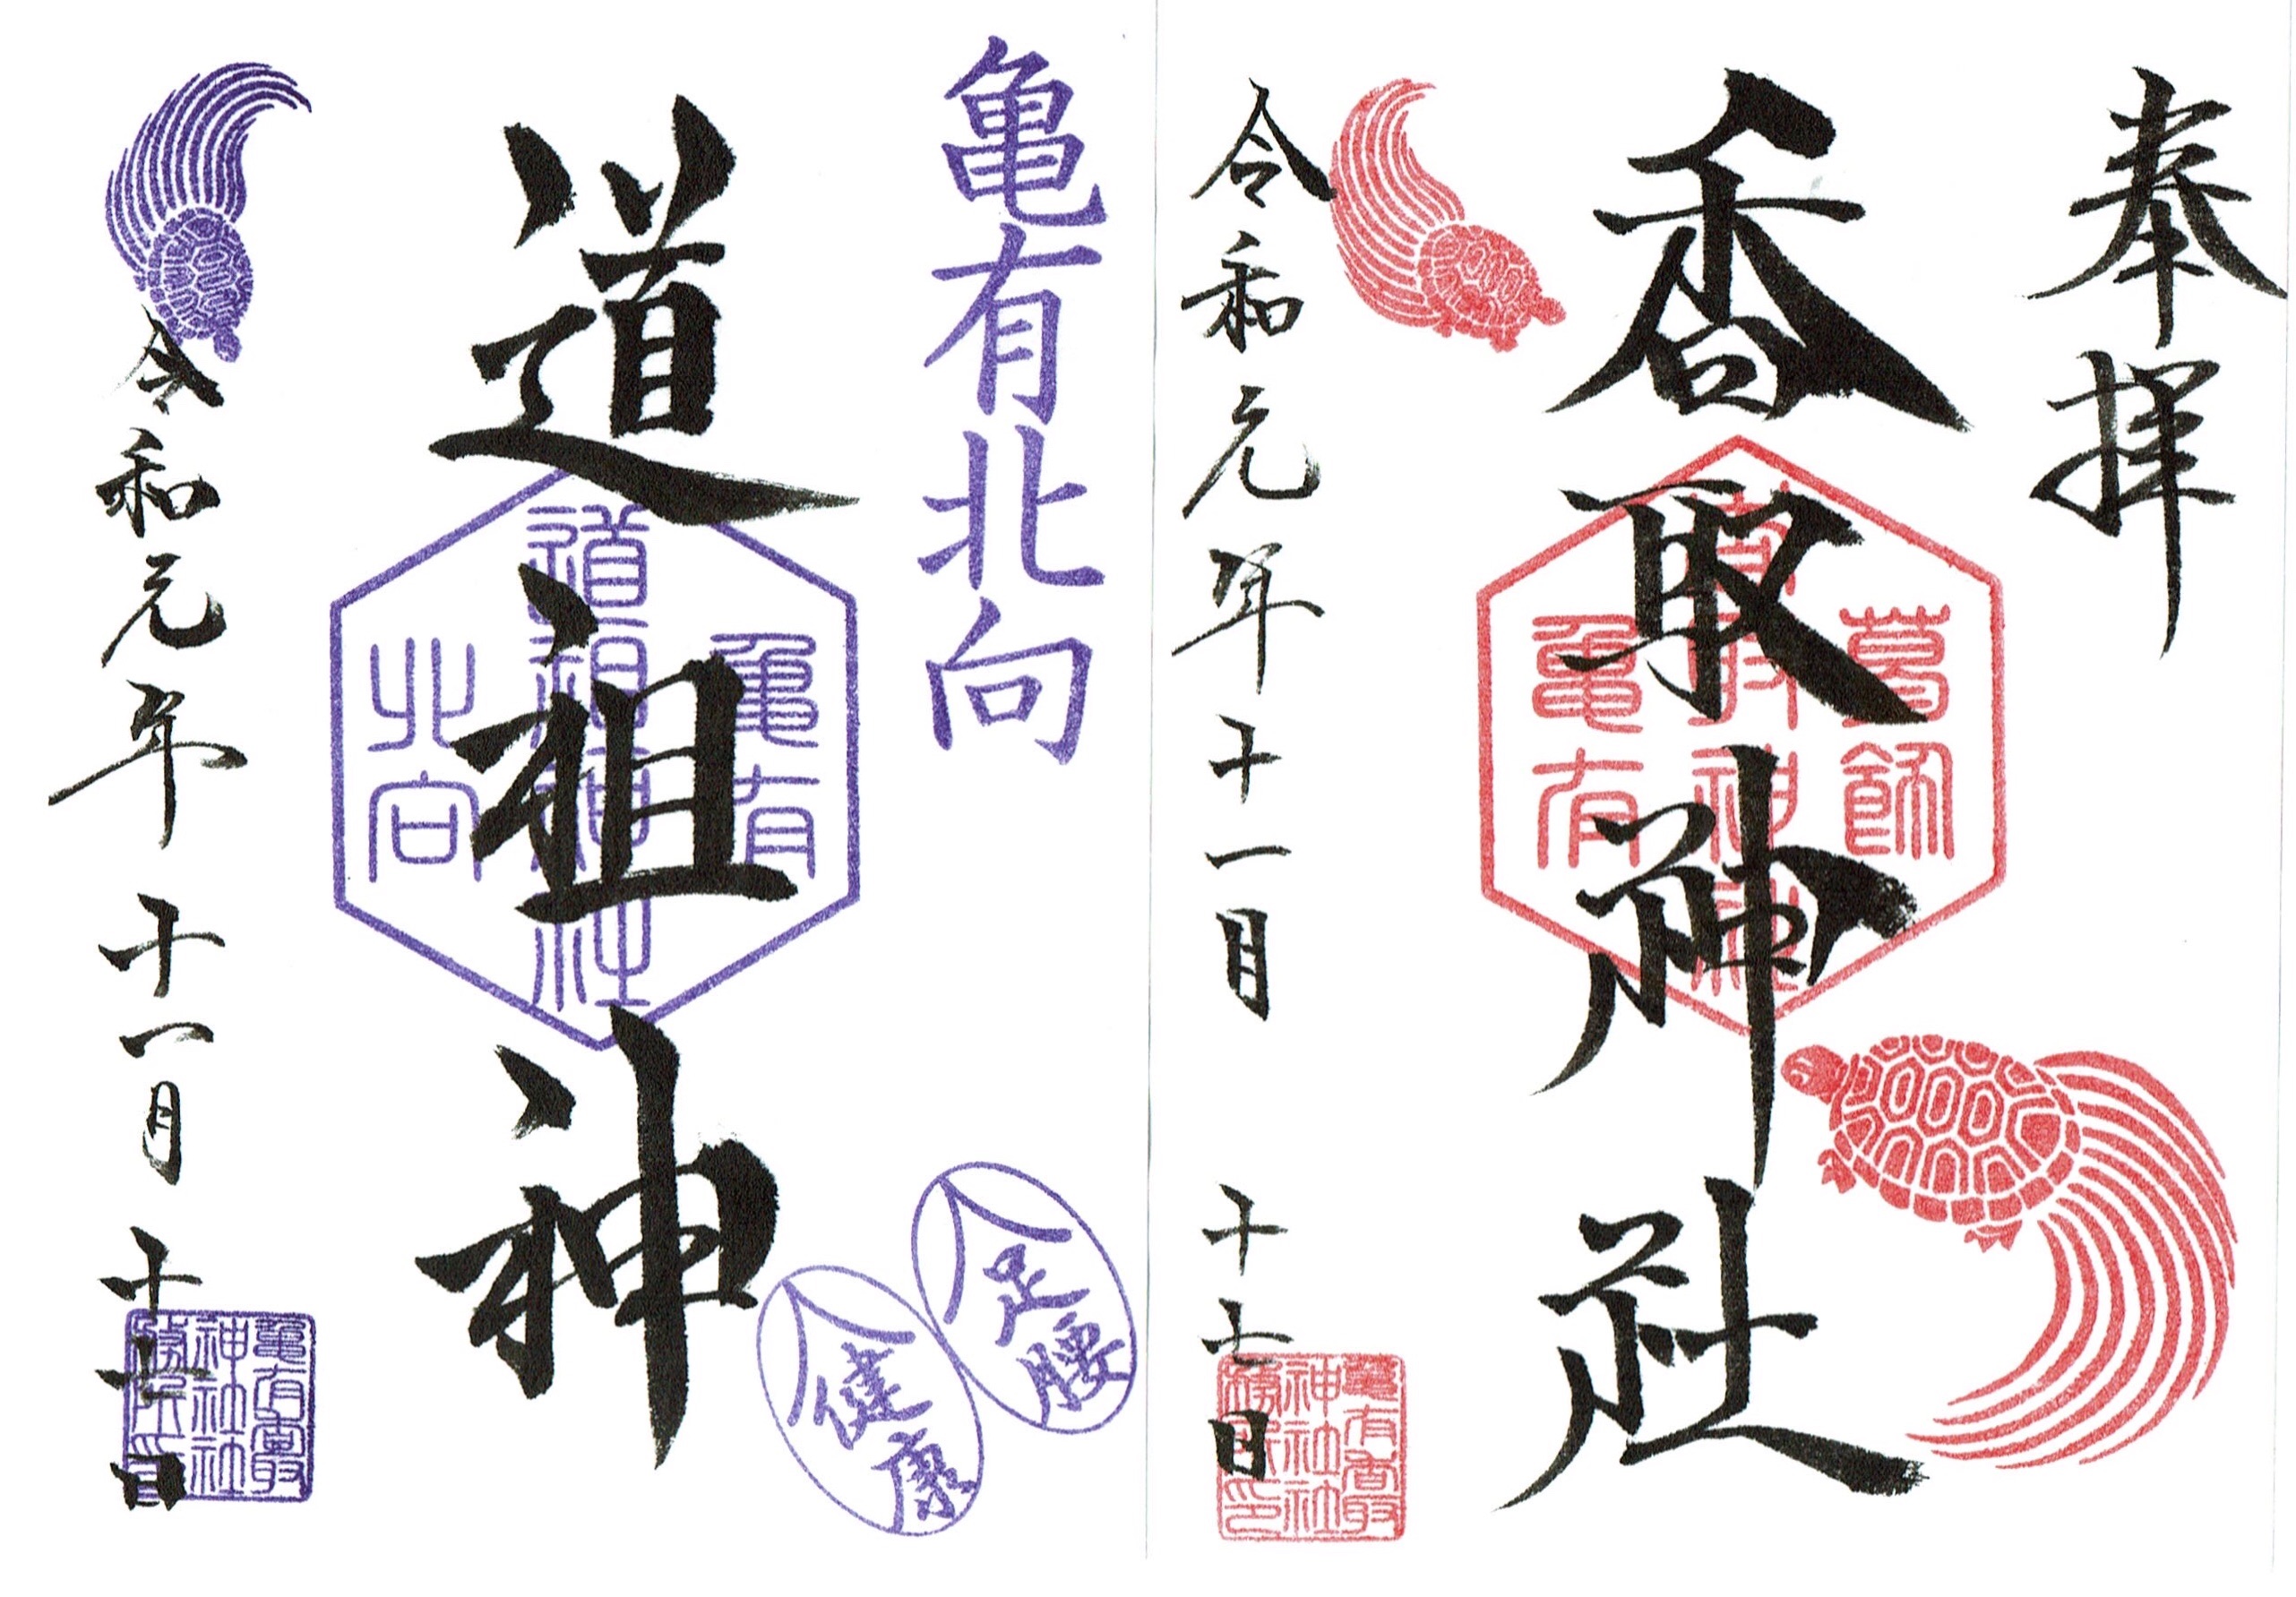 奉拝
香取神社
葛飾
香取神社
亀有
令和元年十一月十七日
亀有香取
神社社
務所印
亀有北向
道祖神
亀有
道祖神社
北向
足腰
健康
令和元年十一月十七日
亀有香取
神社社
務所印